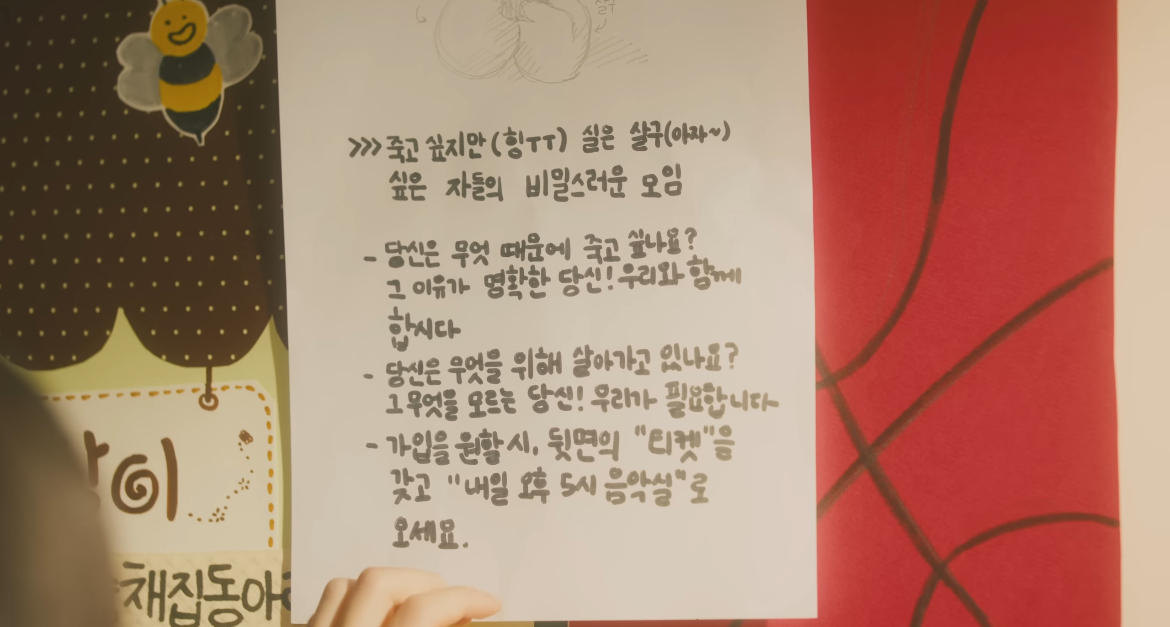 살구
>>> 죽고 싶지만(힝ㅜㅜ) 실은 살구(아자~)
싶은 자들의 비밀스러운 모임
- 당신은 무엇 때문에 죽고 싶나요?
그 이유가 명확한 당신! 우리와 함께
합시다
- 당신은 무엇을 위해 살아가고 있나요?
그 무엇을 모르는 당신! 우리가 필요합니다
- 가입을 원할 시, 뒷면의 "티켓"을
갖고 "내일 오후 5시 음악실"로
오세요.
이
채집동아